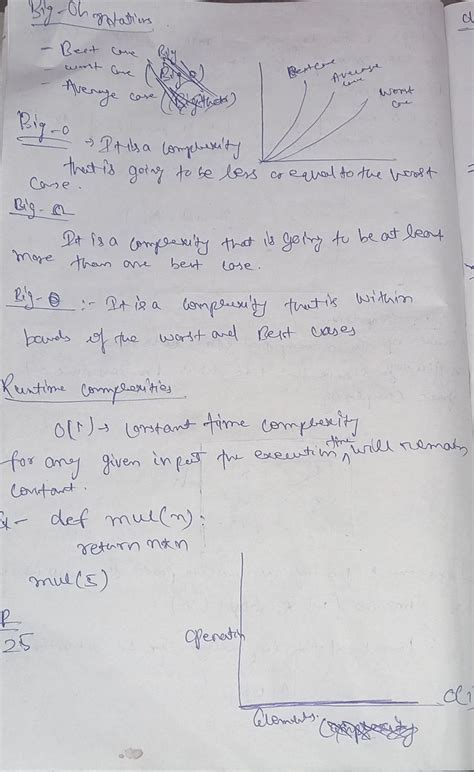 Big-Oh notations
- Best case
- worst case
- Average case
Best case
Average
case
Worst
case
Big-O
→ It is a complexity
that is going to be less or equal to the worst
case.
Big-Ω
It is a complexity that is going to be at least
more than one best case.
Big-Θ :- It is a complexity that is within
bands of the worst and Best cases
Runtime complexities
O(1) → constant time complexity
for any given input the execution time will remain
constant.
def mul(n):
return n*n
mul(5)
25
operation
O(1
Elements.